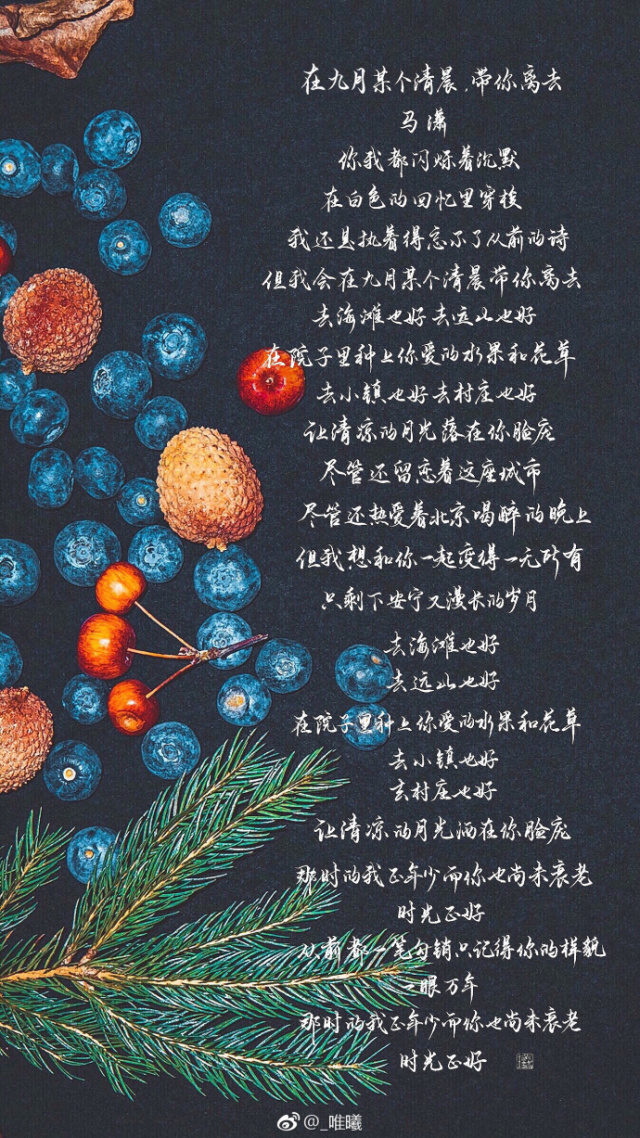 在九月某个清晨,带你离去
马潇
你我都闪烁着沉默
在白色的回忆里穿梭
我还是执着得忘不了从前的诗
但我会在九月某个清晨带你离去
去海滩也好去远山也好
在院子里种上你爱的水果和花草
去小镇也好去村庄也好
让清凉的月光落在你脸庞
尽管还留恋着这座城市
尽管还热爱着北京喝醉的晚上
但我想和你一起变得一无所有
只剩下安宁又漫长的岁月
去海滩也好
去远山也好
在院子里种上你爱的水果和花草
去小镇也好
去村庄也好
让清凉的月光洒在你脸庞
那时的我正年少而你也尚未衰老
时光正好
从前都一笔勾销只记得你的样貌
一眼万年
那时的我正年少而你也尚未衰老
时光正好
@_唯曦